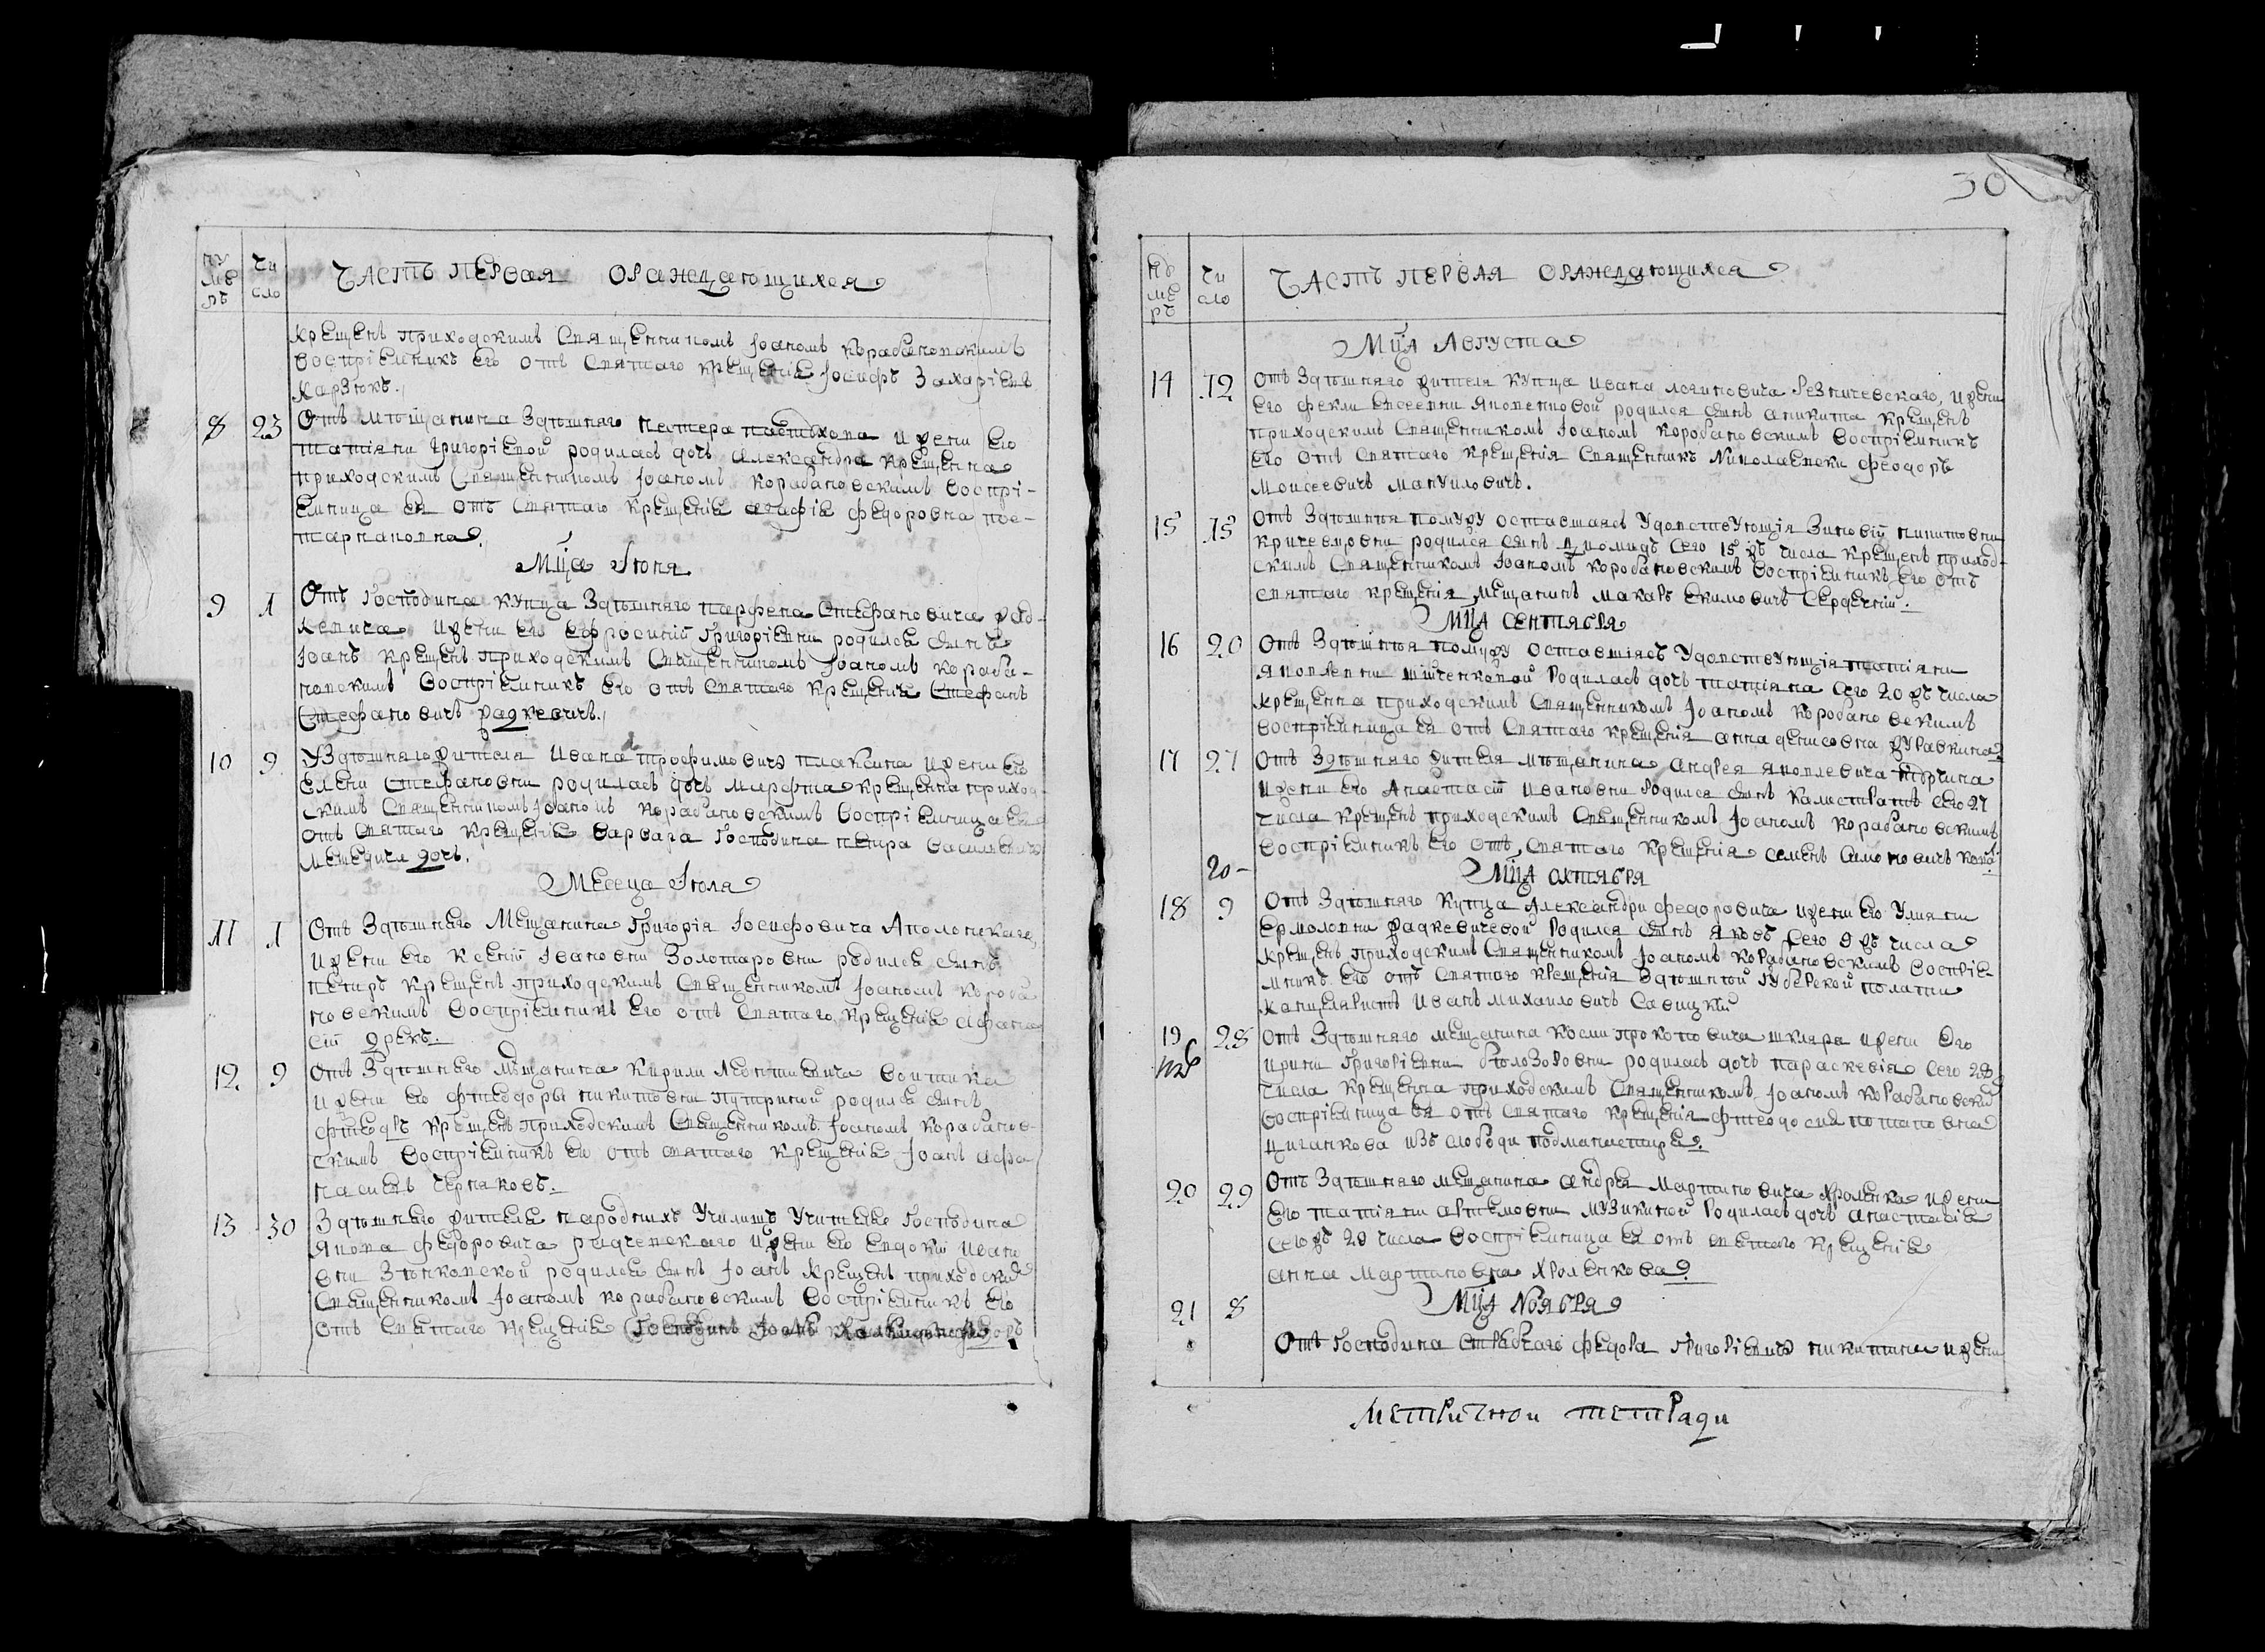 ну
ме
ръ
Чи
сло
Часть первая ораждающихся
крещенъ приходскимъ Священникомъ Іоаномъ Корабановскимъ
воспріемникъ его отъ Святаго крещенія Іосифъ Захаріевъ
Карзюкъ.
8 23 Отъ мѣщанина Здѣшняго Петера и жени его
татіяни Григоріевой родилась дочь Александра крещенна
приходскимъ Священникомъ Іоаномъ Корабановскимъ воспрі-
емница ея отъ Святаго крещенія агафія федоровна
Мца Іюня
9 1 Отъ Господина купца Здѣшняго парфена Стефановича рад-
кевича и жени его ефросиніи Григоріевни родился синъ
Іоанъ крещенъ приходскимъ Священникомъ Іоаномъ Кораба-
новскимъ воспріемникъ его отъ Святаго крещенія Стефанъ
Стефановичъ радкевичъ.
10 9 У Здѣшняго жителя Ивана трофимовича плаксина и жени его
Елени Стефановни родилась дочь Марфта крещенна приход-
скимъ Священникомъ Іоаномъ Корабановскимъ воспріемница ея
отъ Святаго крещенія варвара Господина петра васильевича
дочь.
Месеца Іюля
11 1 Отъ Здѣшнего Мещанина Григорія Іосифовича Аполонскаго,
и жени его Ксеніи Івановни Золотаровни родился синъ
петръ крещенъ приходскимъ Священникомъ Іоаномъ Короба
новскимъ воспріемникъ его отъ Святаго крещенія афана
сій
12 9 Отъ Здѣшнего Мѣщанина Кирили Леонтиевича воитика
и жени его фтеодоры никитовни Путриной родился синъ
фтеодръ крещенъ приходскимъ Священникомъ Іоаномъ Корабанов-
скимъ воспріемникъ его отъ Святаго крещенія Іоанъ афа
насиевъ черняковъ.
13 30 Здѣшнего жителя народнихъ училищъ учителя Господина
Якова федоровича радченскаго и жени его евдокіи ивано
вни Зѣнковской родился синъ Іоанъ крещенъ приходски
Священникомъ Іоаномъ Корабановскимъ воспріемникъ его
отъ Святаго крещенія Господинъ Іоанъ
30
ну
ме
ръ
Чи
сло
Часть первая оражднающихся
Мца Августа
14 12 Отъ Здѣшняго жителя купца Ивана логиновича Резничевскаго, и жени
его фекли евсеевни Яковенковой родился синъ аникита крещенъ
приходскимъ Священникомъ Іоаномъ Коробановскимъ воспріемникъ
его отъ Святаго крещенія Священникъ Николаевски феодоръ
Моисеевичъ мануиловичъ.
15 15 Отъ Здѣшнія помужу оставшаясъ Удовствующія Зиновіи никитовни
кричевцовни родился синъ диомидъ Сего 15 жъ числа крещенъ приход-
скимъ Священникомъ Іоаномъ Коробановскимъ воспріемникъ его отъ
святаго крещенія мещанинъ макаръ екимовичъ Сердечнiй.
Мца Сентября
16 20 Отъ Здѣшнія помужу оставшіясъ Удовствующія татіяни
Яковлевни родилась дочь татіяна сего 20 жъ числа
крещенна приходскимъ Священникомъ Іоаномъ Коробановскимъ
воспріемница ея отъ Святаго крещенія анна денисовна журавкина
17 27 Отъ Здѣшняго жителя мѣщанина андрея яковлевича
и жени его Анастасіи Ивановни родился синъ Калистратъ сего 27
числа крещенъ приходскимъ Священникомъ Іоаномъ Корабановскимъ
воспріемникъ его отъ Святаго крещенія семенъ симоновичъ
20 - Мца октября
18 9 Отъ Здѣшняго купца Александри федоровича и жени его Улияни
Ермоловни радкевичевой родился синъ Яковъ сего 9 жъ числа
крещенъ приходскимъ Священникомъ Іоаномъ Корабановскимъ воспріе-
мникъ его отъ Святаго крещенія Здѣшней губерской полати
канцеляристъ Иванъ михаиловичъ Савицкій
19 28 Отъ Здѣшняго мещанина косми прокоповича шкляра и жени его
ирини Григоріевни родилась дочь параскевія сего 28
числа крещенна приходскимъ Священникомъ Іоаномъ Корабановски
воспріемница ея отъ Святаго крещенія фтеодосия потаповна
циганкова изъ слободи подмонастиря.
20 29 Отъ Здѣшняго мещанина андрея мартиновича Хроленка и жени
его татіяни артемовни музикиной родилась дочь анастасія
сего жъ 29 числа воспріемница ея отъ святаго крещенія
анна мартиновна Хроленкова.
21 8 Мца Ноября
Отъ Господина федора григоріевича никитина и жени
метричной тетради